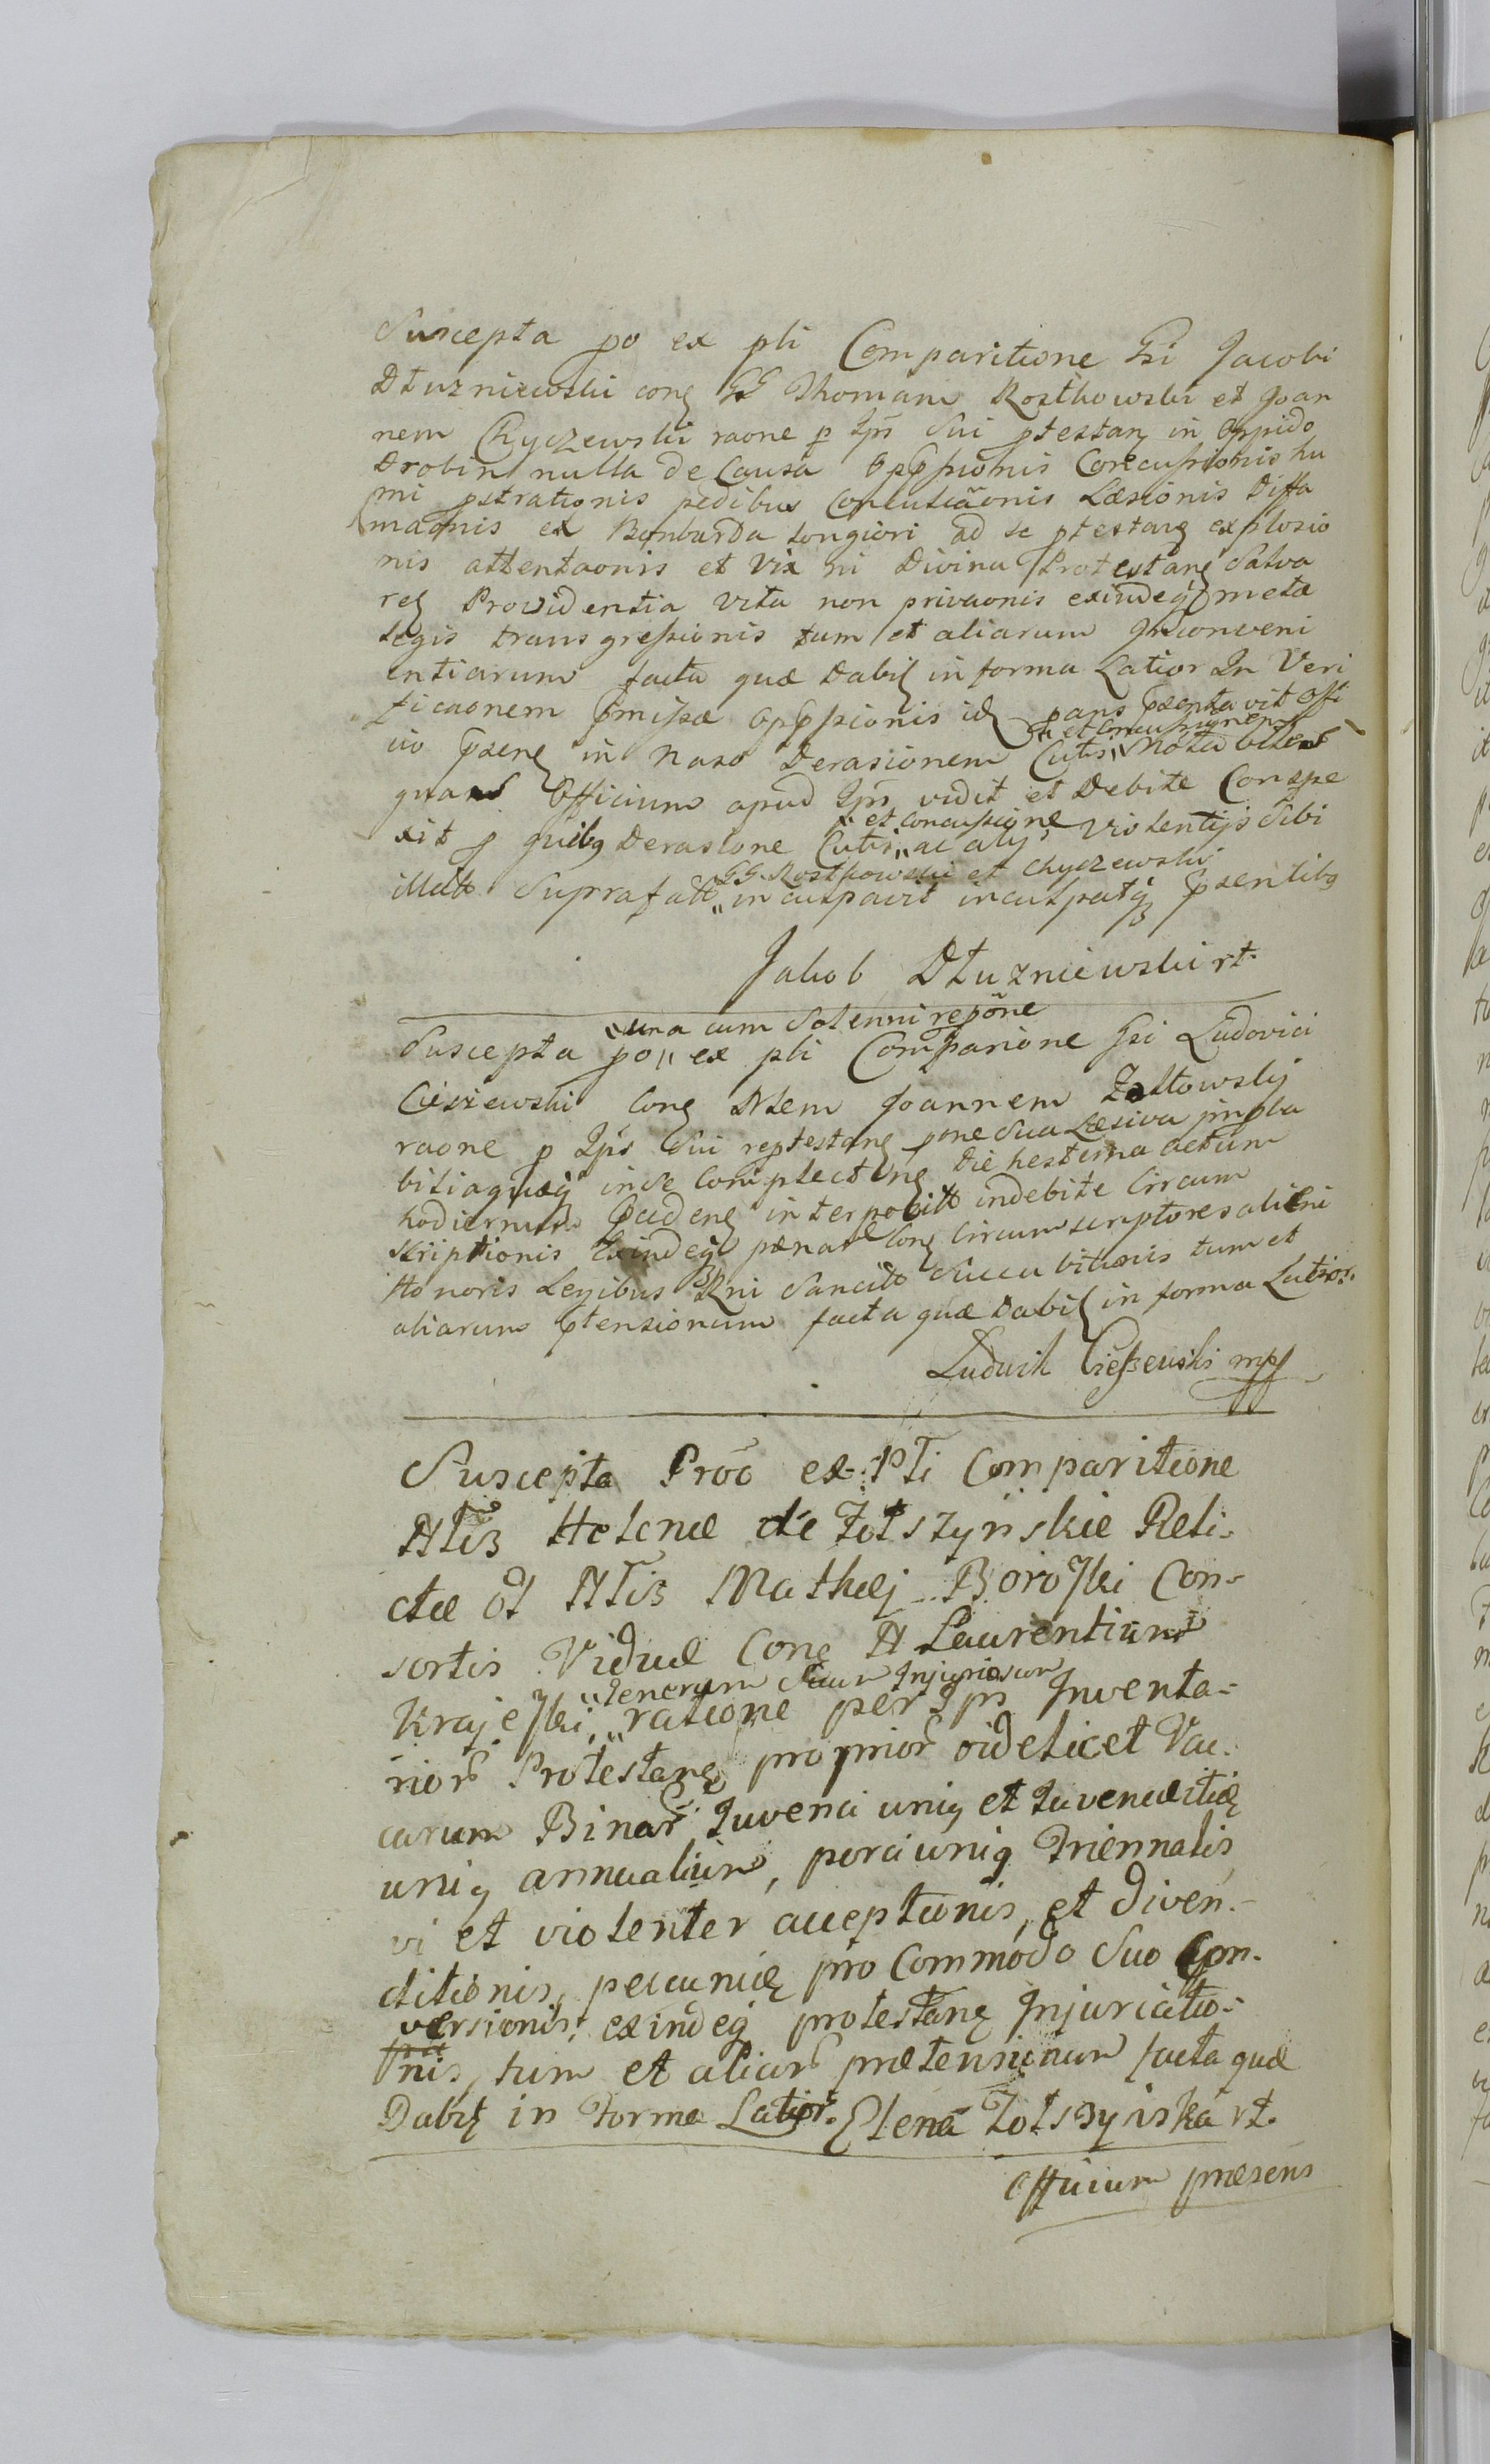 Suscepta pō ex pti Comparitione Gsi Jacobi
Dłuzniewski con̄ GG Thomam Rostkowski et Joan
nem Chyczewski raone p Ips̄ Sui ptestan̄ in Oppido
Drobin nulla de Causa Opp̄ssionis Concussionis hu
mi pstrationis pedibus Conculcāonis Læsionis Diffa
maonis ex Bombarda longiori ad se ptestan̄ explosio
nis attentaonis et Vix ni Divina Protestan̄ Salva
ren̄ Providentia Vita non privaonis exindeq̄ metæ
legis transgressionis tum et aliarum Inconveni
entiarum facta quæ Dabit̄ in forma Latior In Veri
ficaonem p̄missæ Opp̄ssionis id̄ p̄ans p̄senta vit Offi
cio p̄sen̄ in naso Derasionem Cutis „ et Concussionem nota biles
quas Officium apud Ips̄ vidit et Debite Conspe
xit p quibȝ Derasione Cutis „ et concussione ac alijs Violentijs Sibi
illatt Suprafatt „ GG. Rostkowski et Chyczewski in culpavit inculpatq̄ p̄sentibȝ
Jakob Dłuzniewski rt.
Suscepta pō „ una cum Solenni repōne ex pti Comparione Gsi Ludovici
Cieszewski Con̄ Nlem Joannem Zołtowskij
raone p Ips̄ Sui reptestan̄ pone Sua Læsiva propla
bitiaquæq̄ in se Complecten̄ Die hesterna actum
hodiernum p̄ceden̄ interpositt indebite Circum
skriptionis Exindeq̄ pænar̄ Con̄ Circumscriptores alieni
Honoris Legibus Rni Sancitt Succubitionis tum et
aliarum p̄tensionum facta quæ Dabit̄ in forma Latior.
Ludwik Cieszewski mpp
Suscepta Prōo ex pti Comparitione
Nlis Helenæ de Zołszynskie Reli-
ctæ ol Nlis Mathæj Borowski Con-
sortis Viduæ Con̄ N Laurentium
Krajewski, „ Generum Suum Injuriosum ratione per Ips̄ Inventa-
rior̄ Protestan̄ proprior̄ videlicet Vac-
carum Binar̄ Juvenci uniȝ et Juvencæ itid̄
uniȝ annualium, porci uniȝ Triennalis
vi et violenter acceptionis, et Diven-
ditionis, pecuniæ pro Commodo Suo Con-
versionis, exindeq̄ protestan̄ Injuriatio-
nis, tum et aliar̄ prætensionum facta quæ
Dabit̄ in Forma Latior̄. Elena Zołszyiska rt.
Officium præsens